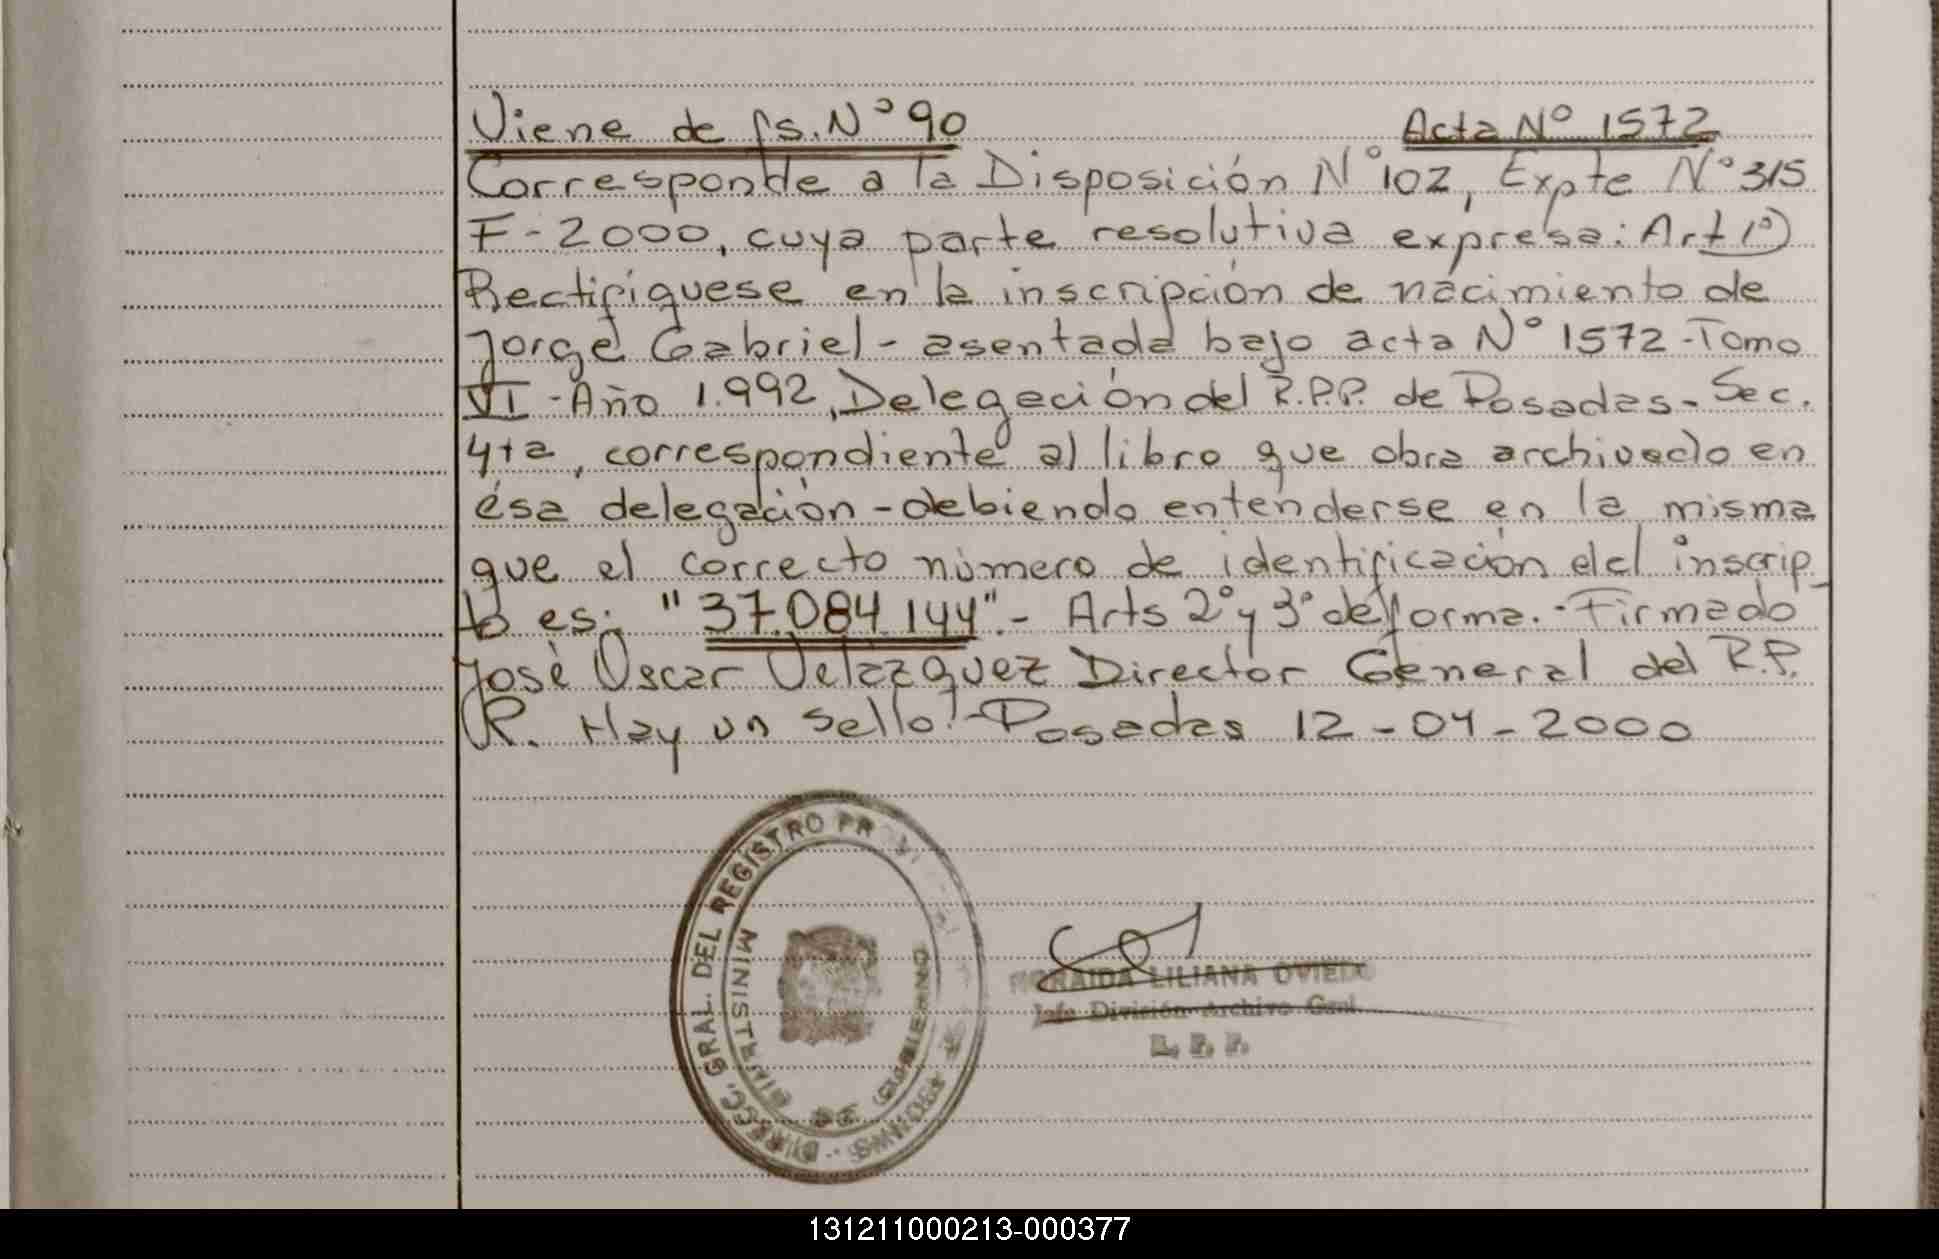 Viene de fs. Nº 90 Acta Nº 1572
Corresponde a la Disposición Nº 102, Expte Nº 315
F-2000, cuya parte resolutiva expresa: Art 1º)
Rectifíquese en la inscripción de nacimiento de
Jorge Gabriel - asentada bajo acta Nº 1572 - Tomo
VI - Año 1.992, Delegación del R.P.P. de Posadas - Sec.
4ta, correspondiente al libro que obra archivado en
ésa delegación - debiendo entenderse en la misma
que el correcto número de identificación del inscrip
to es: "37.084.144".- Arts 2º y 3º de forma.- Firmado
José Oscar Velazquez Director General del R.P.
R. Hay un sello.- Posadas 12-04-2000
DIRECC. GRAL. DEL REGISTRO PROVINCIAL
MISIONES
MINISTERIO DE GOBIERNO
LILIANA OVIEDO
Jefe División Archivo Gral.
131211000213-000377